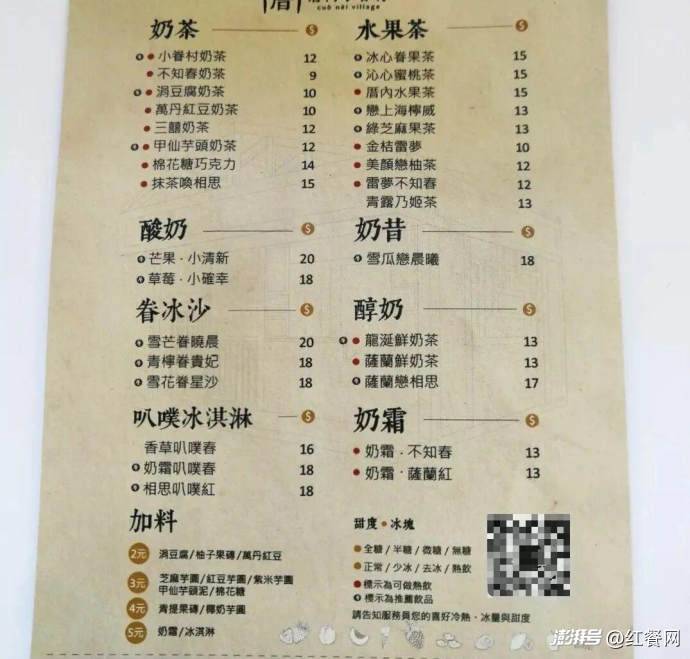 厝
cuò nèi village
奶茶 $
小眷村奶茶 12
不知春奶茶 9
涓豆腐奶茶 10
萬丹紅豆奶茶 10
三囍奶茶 12
甲仙芋頭奶茶 12
棉花糖巧克力 14
抹茶喚相思 15
水果茶 $
冰心眷果茶 15
沁心蜜桃茶 15
厝內水果茶 15
戀上海檸威 13
綠芝麻果茶 13
金桔雷夢 10
美顏戀柚茶 12
雷夢不知春 12
青露乃姬茶 13
酸奶 $
芒果·小清新 20
草莓·小確幸 18
奶昔 $
雪瓜戀晨曦 18
眷冰沙 $
雪芒眷曉晨 20
青檸眷貴妃 18
雪花眷星沙 18
醇奶 $
龍涎鮮奶茶 13
薩蘭鮮奶茶 13
薩蘭戀相思 17
叭噗冰淇淋 $
香草叭噗春 16
奶霜叭噗春 18
相思叭噗紅 18
奶霜 $
奶霜·不知春 13
奶霜·薩蘭紅 13
加料
2元 涓豆腐/柚子果磚/萬丹紅豆
3元 芝麻芋圓/紅豆芋圓/紫米芋圓
甲仙芋頭泥/棉花糖
4元 青提果磚/椰奶芋圓
5元 奶霜/冰淇淋
甜度·冰塊
全糖/半糖/微糖/無糖
正常/少冰/去冰/熱飲
標示為可做熱飲
標示為推薦飲品
請告知服務員您的喜好冷熱、冰量與甜度
澎湃号 @红餐网